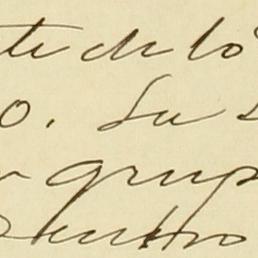 te de lo
o. Su
grup
dentro